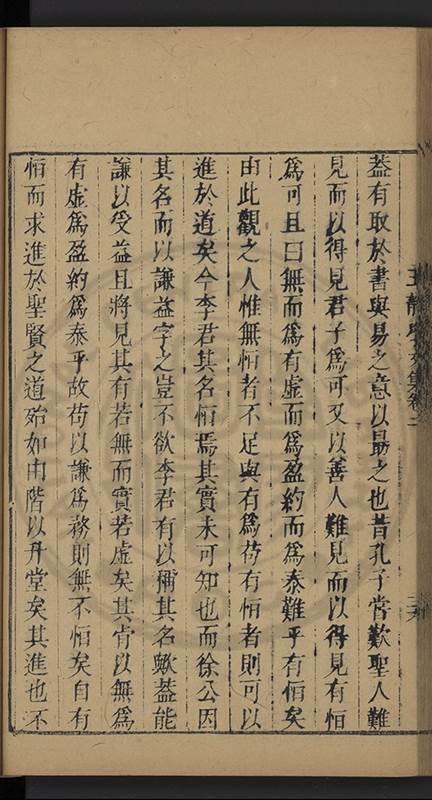 蓋有取於書與易之意以勗之也昔孔子嘗歎聖人難
見而以得見君子爲可又以善人難見而以得見有恒
爲可且曰無而爲有虛而爲盈約而爲泰難乎有恒矣
由此觀之人惟無恒者不足與有爲苟有恒者則可以
進於道矣今李君其名恒焉其實未可知也而徐公因
其名而以謙益字之豈不欲李君有以稱其名歟葢能
謙以受益且將見其有若無而實若虛矣其肯以無爲
有虛爲盈約爲泰乎故苟以謙爲務則無不恒矣自有
恒而求進於聖賢之道殆如由階以升堂矣其進也不